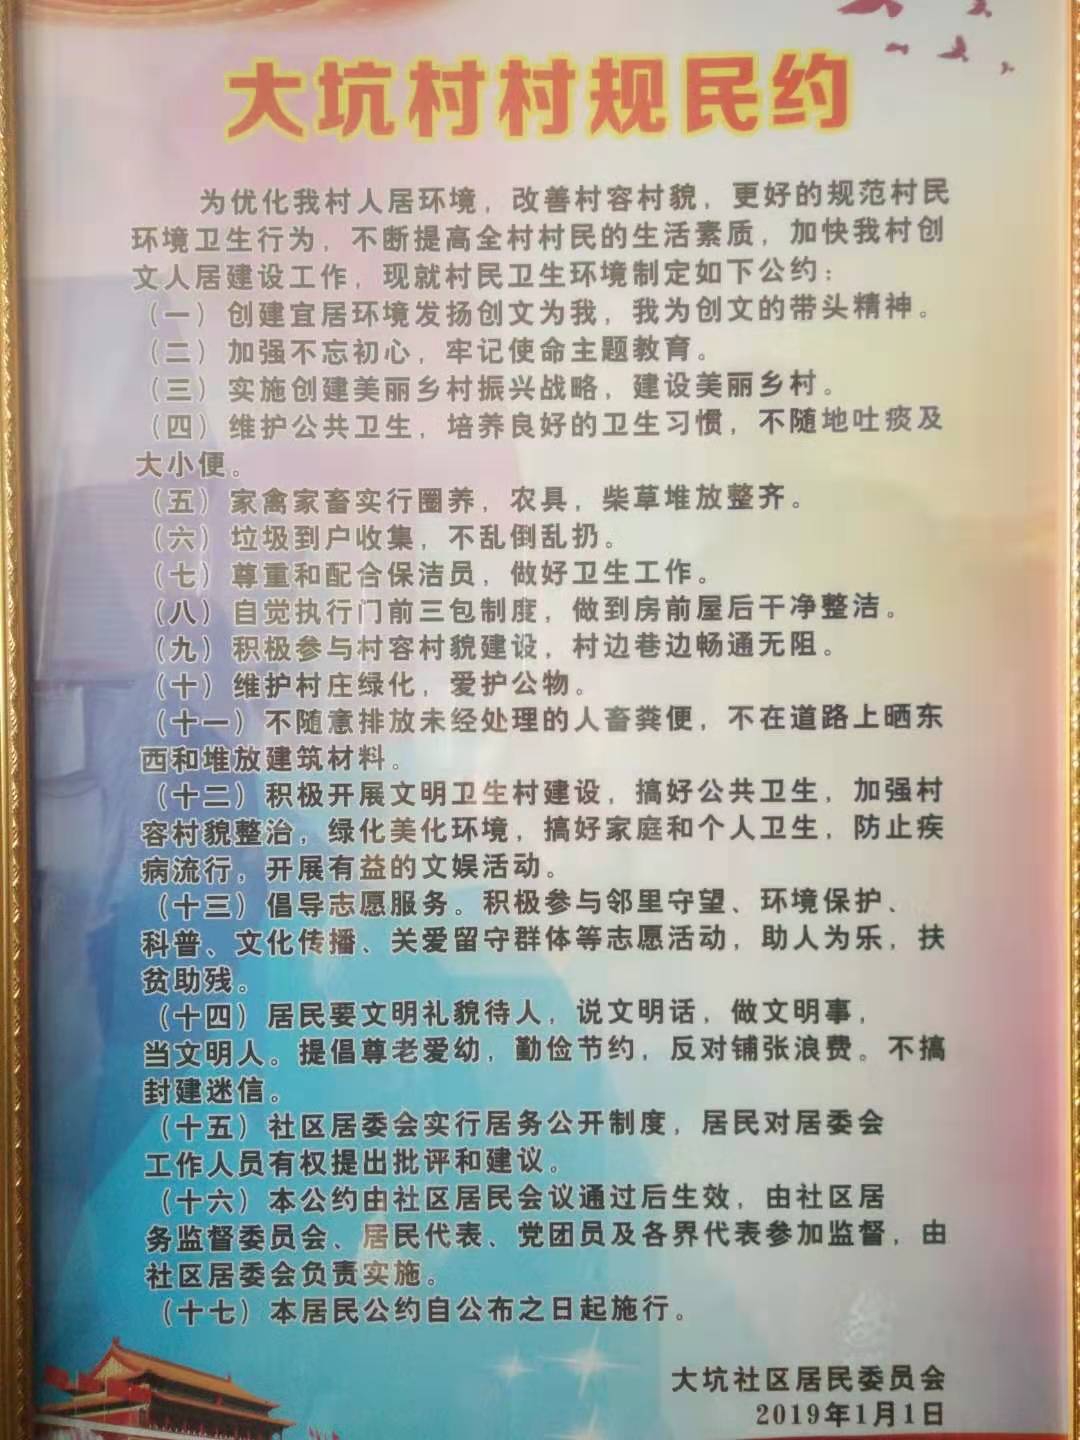 大坑村村规民约
为优化我村人居环境，改善村容村貌，更好的规范村民
环境卫生行为，不断提高全村村民的生活素质，加快我村创
文人居建设工作，现就村民卫生环境制定如下公约：
（一）创建宜居环境发扬创文为我，我为创文的带头精神。
（二）加强不忘初心，牢记使命主题教育。
（三）实施创建美丽乡村振兴战略，建设美丽乡村。
（四）维护公共卫生，培养良好的卫生习惯，不随地吐痰及
大小便。
（五）家禽家畜实行圈养，农具，柴草堆放整齐。
（六）垃圾到户收集，不乱倒乱扔。
（七）尊重和配合保洁员，做好卫生工作。
（八）自觉执行门前三包制度，做到房前屋后干净整洁。
（九）积极参与村容村貌建设，村边巷边畅通无阻。
（十）维护村庄绿化，爱护公物。
（十一）不随意排放未经处理的人畜粪便，不在道路上晒东
西和堆放建筑材料。
（十二）积极开展文明卫生村建设，搞好公共卫生，加强村
容村貌整治，绿化美化环境，搞好家庭和个人卫生，防止疾
病流行，开展有益的文娱活动。
（十三）倡导志愿服务。积极参与邻里守望、环境保护、
科普、文化传播、关爱留守群体等志愿活动，助人为乐，扶
贫助残。
（十四）居民要文明礼貌待人，说文明话，做文明事，
当文明人。提倡尊老爱幼，勤俭节约，反对铺张浪费。不搞
封建迷信。
（十五）社区居委会实行居务公开制度，居民对居委会
工作人员有权提出批评和建议。
（十六）本公约由社区居民会议通过后生效，由社区居
务监督委员会、居民代表、党团员及各界代表参加监督，由
社区居委会负责实施。
（十七）本居民公约自公布之日起施行。
大坑社区居民委员会
2019年1月1日